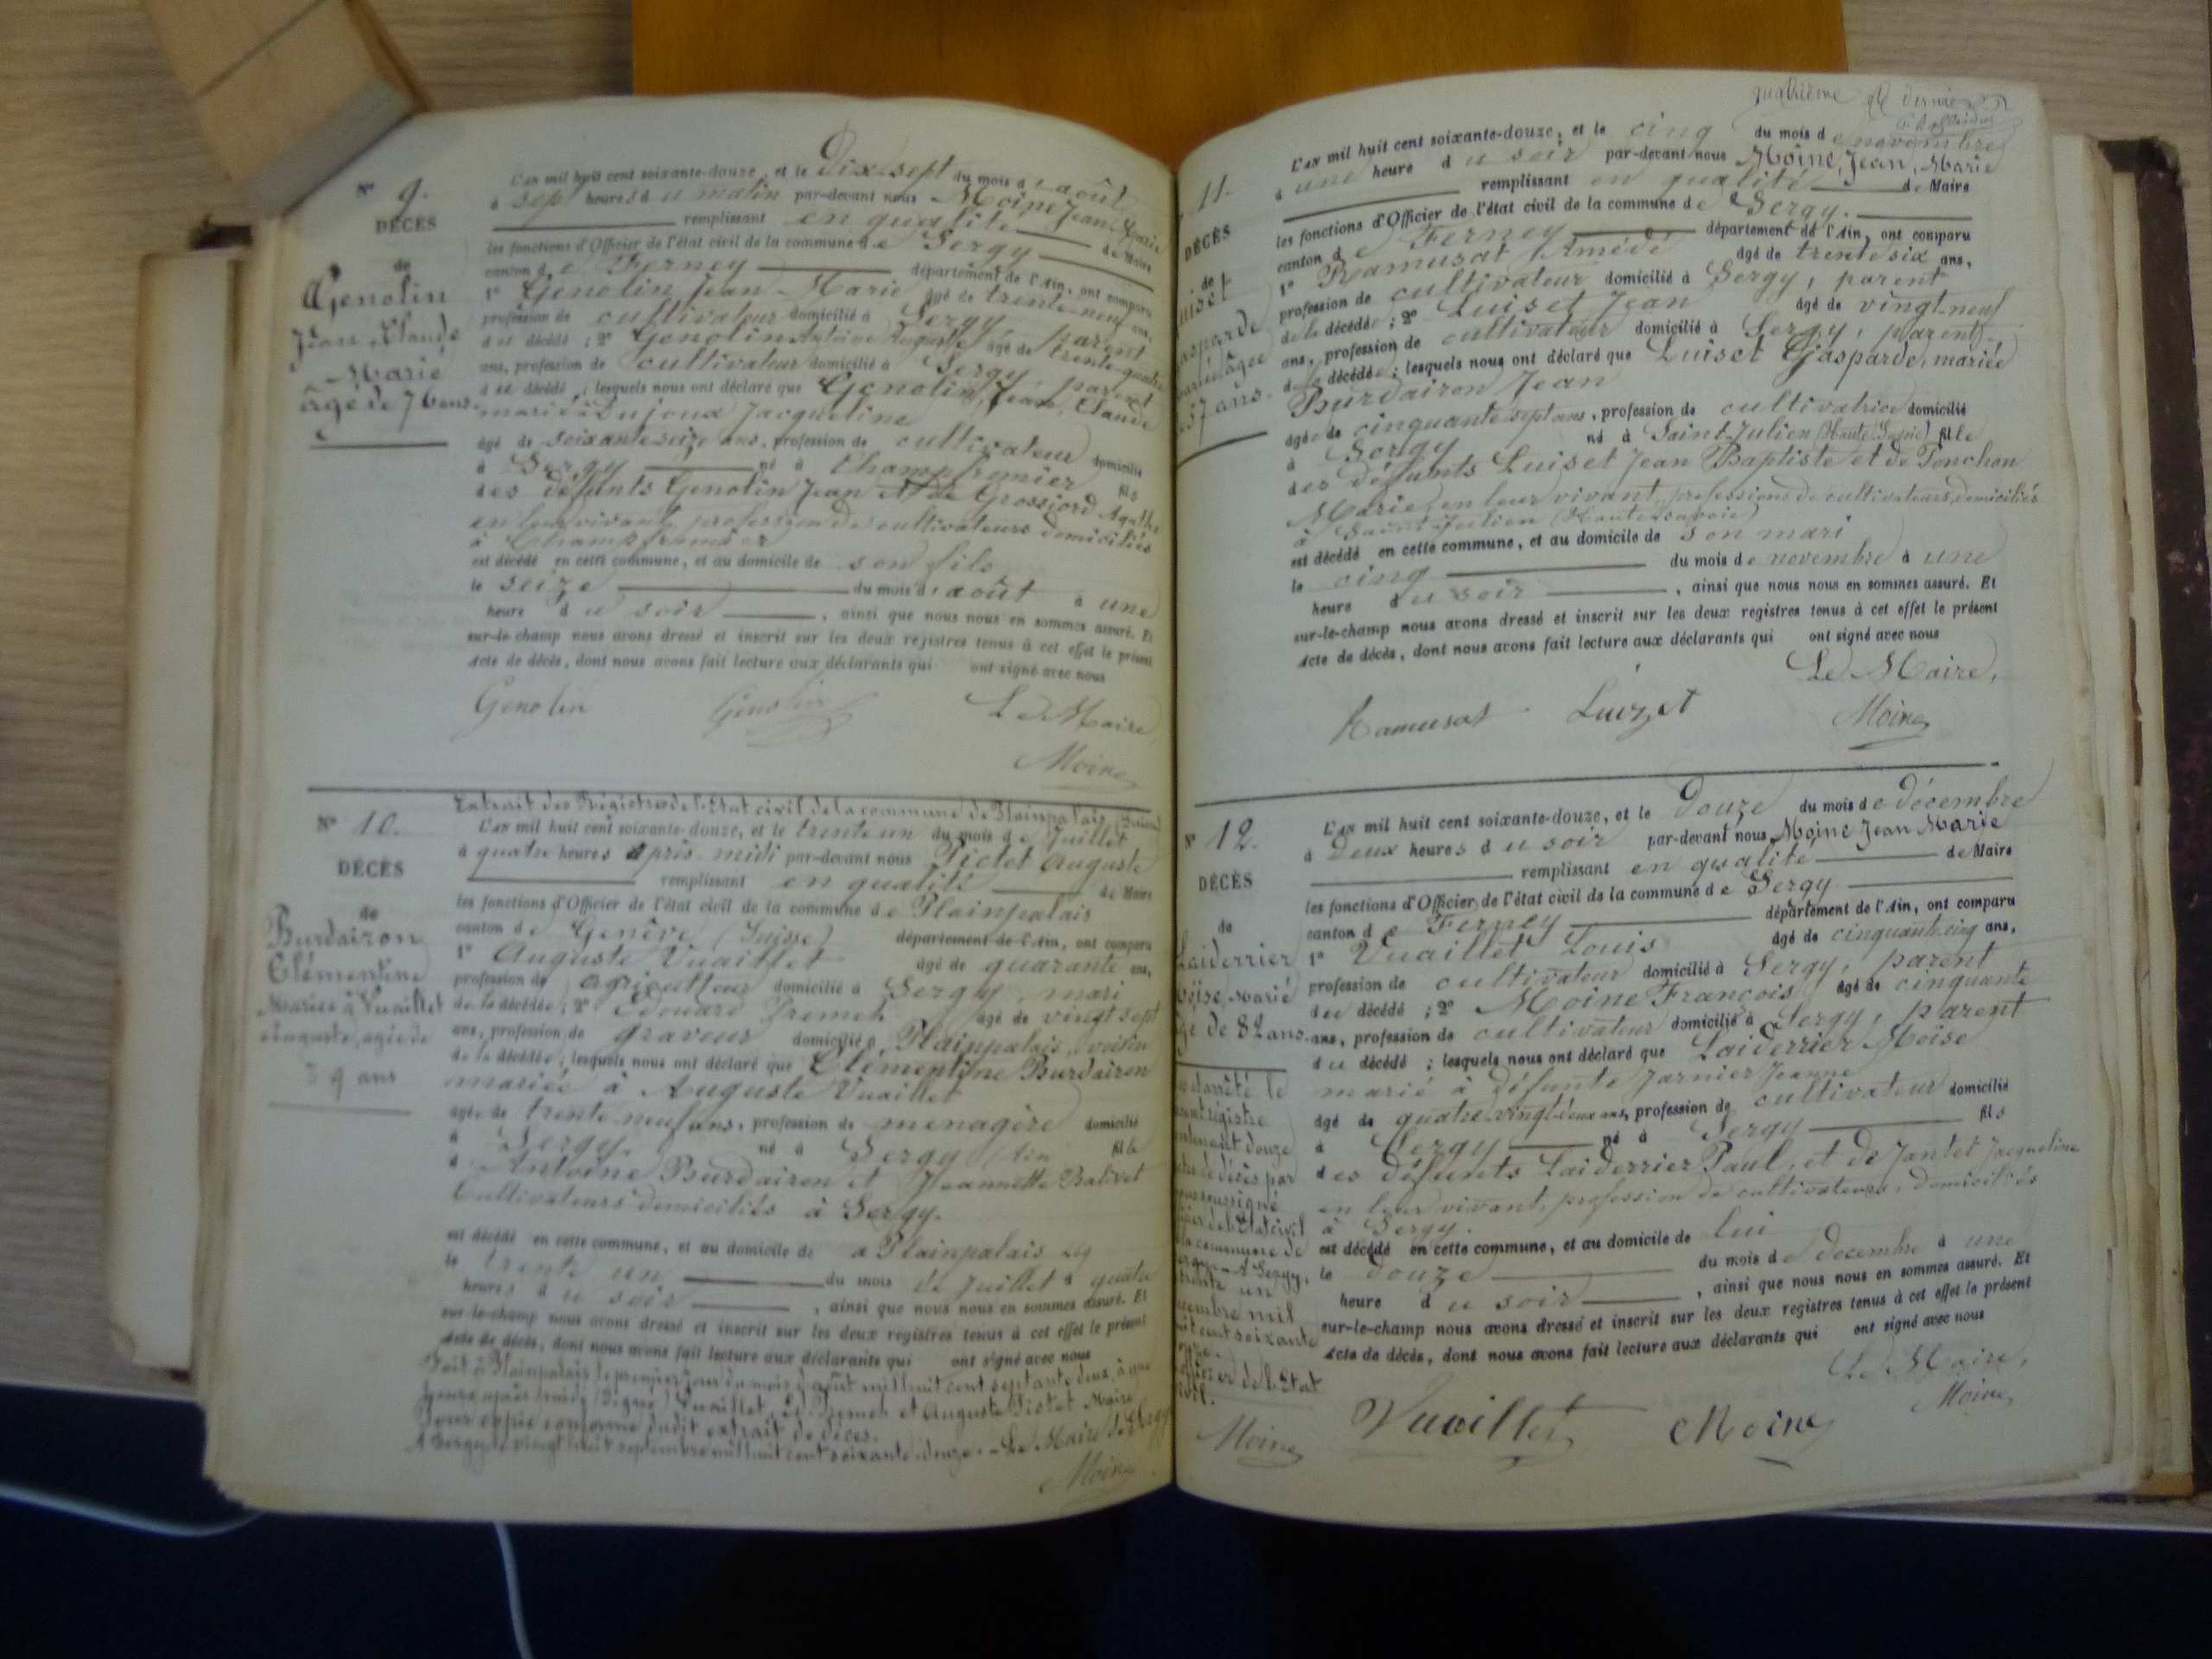 N° 9.
DÉCÈS
de
Genolin
Jean, Claude
Marie
âgé de 76 ans.
L'an mil huit cent soixante-douze, et le Dix-sept du mois d'août
à sept heures du matin par-devant nous Moine Jean Marie
remplissant en qualité de Maire
les fonctions d'Officier de l'état civil de la commune de Sergy
canton de Ferney département de l'Ain, ont comparu
1° Genolin Jean-Marie âgé de trente-neuf ans,
profession de cultivateur domicilié à Sergy, parent
du décédé ; 2° Genolin Antoine Auguste âgé de trente-quatre
ans, profession de cultivateur domicilié à Sergy parent
du décédé ; lesquels nous ont déclaré que Genolin, Jean, Claude
marié à Dujoux Jacqueline
âgé de soixante-seize ans, profession de cultivateur domicilié
à Sergy né à Champfromier fils
des défunts Genolin Jean et de Grossiord Agathe
en leur vivant, profession de cultivateurs domiciliés
à Champfromier
est décédé en cette commune, et au domicile de son fils
le seize du mois d'août à une
heure du soir, ainsi que nous nous en sommes assuré. Et
sur-le-champ nous avons dressé et inscrit sur les deux registres tenus à cet effet le présent
Acte de décès, dont nous avons fait lecture aux déclarants qui ont signé avec nous
Genolin Genolin Le Maire
Moine
N° 10.
DÉCÈS
de
Burdairon
Clémentine
Mariée à Vuaillet
Auguste, agée de
39 ans
Extrait des Registres de l'Etat civil de la commune de Plainpalais (Suisse)
L'an mil huit cent soixante-douze, et le trente un du mois de Juillet
à quatre heures après-midi par-devant nous Pictet Auguste
remplissant en qualité de Maire
les fonctions d'Officier de l'état civil de la commune de Plainpalais
canton de Genève (Suisse) département de l'Ain, ont comparu
1° Auguste Vuaillet âgé de quarante ans,
profession de agriculteur domicilié à Sergy, mari
de la décédée ; 2° Edouard Dremch âgé de vingt sept
ans, profession de graveur domicilié à Plainpalais, voisin
de la décédée ; lesquels nous ont déclaré que Clémentine Burdairon
mariée à Auguste Vuaillet
âgée de trente-neuf ans, profession de ménagère domicilié
à Sergy. né à Sergy Ain fille
d Antoine Burdairon et Jeannette Balivet
Cultivateurs domiciliés à Sergy.
est décédé en cette commune, et au domicile de à Plainpalais
le trente un du mois de Juillet à quatre
heures du soir, ainsi que nous nous en sommes assuré. Et
sur-le-champ nous avons dressé et inscrit sur les deux registres tenus à cet effet le présent
Acte de décès, dont nous avons fait lecture aux déclarants qui ont signé avec nous
Fait à Plainpalais le premier jour du mois d'août mil huit cent septante deux, à
heures après midi (Signé) Vuaillet, Ed. Dremch et Auguste Pictet Maire
Pour copie conforme dudit extrait de décès.
A Sergy, le vingt huit septembre mil huit cent soixante-douze. Le Maire de Sergy
Moine
quatrième et dernier
11.
DÉCÈS
de
Luiset
Gasparde
mariée âgée
57 ans.
L'an mil huit cent soixante-douze, et le cinq du mois de novembre
à une heure du soir par-devant nous Moine, Jean, Marie
remplissant en qualité de Maire
les fonctions d'Officier de l'état civil de la commune de Sergy.
canton de Ferney département de l'Ain, ont comparu
1° Ramusat Amédé âgé de trente six ans,
profession de cultivateur domicilié à Sergy, parent
de la décédée ; 2° Luiset Jean âgé de vingt-neuf
ans, profession de cultivateur domicilié à Sergy, parent,
de la décédée ; lesquels nous ont déclaré que Luiset Gasparde, mariée
Burdairon Jean
âgée de cinquante sept ans, profession de cultivatrice domicilié
à Sergy né à Saint-Julien (Haute Savoie) fille
des défunts Luiset Jean Baptiste et de Ponchon
Marie, en leur vivant, professions de cultivateurs, domiciliés
à Saint-Julien (Haute Savoie)
est décédé en cette commune, et au domicile de son mari
le cinq du mois de novembre à une
heure du soir, ainsi que nous nous en sommes assuré. Et
sur-le-champ nous avons dressé et inscrit sur les deux registres tenus à cet effet le présent
Acte de décès, dont nous avons fait lecture aux déclarants qui ont signé avec nous
Le Maire,
Ramusat Luizet Moine
N° 12.
DÉCÈS
de
Laiderrier
Moïse, Marié
âgé de 82 ans.
L'an mil huit cent soixante-douze, et le Douze du mois de décembre
à Deux heures du soir par-devant nous Moine Jean Marie
remplissant en qualité de Maire
les fonctions d'Officier de l'état civil de la commune de Sergy
canton de Ferney département de l'Ain, ont comparu
1° Vuaillet Louis âgé de cinquante cinq ans,
profession de cultivateur domicilié à Sergy, parent
du décédé ; 2° Moine François âgé de cinquante
ans, profession de cultivateur domicilié à Sergy, parent
du décédé ; lesquels nous ont déclaré que Laiderrier Moïse
marié à défunte Jarnier Jeanne
âgé de quatre-vingt-deux ans, profession de cultivateur domicilié
à Sergy né à Sergy fils
des défunts Laiderrier Paul, et de Jantet Jacqueline
en leur vivant, profession de cultivateurs, domiciliés
à Sergy.
est décédé en cette commune, et au domicile de lui
le douze du mois de decembre à une
heure du soir, ainsi que nous nous en sommes assuré. Et
sur-le-champ nous avons dressé et inscrit sur les deux registres tenus à cet effet le présent
Acte de décès, dont nous avons fait lecture aux déclarants qui ont signé avec nous
Le Maire,
Vuaillet Moine Moine
arrêté le
registre
contenant douze
actes de décès par
nous soussigné
officier de l'Etat civil
de la commune de
Sergy. A Sergy,
trente un
decembre mil
huit cent soixante
douze.
officier de l'Etat
civil.
Moine